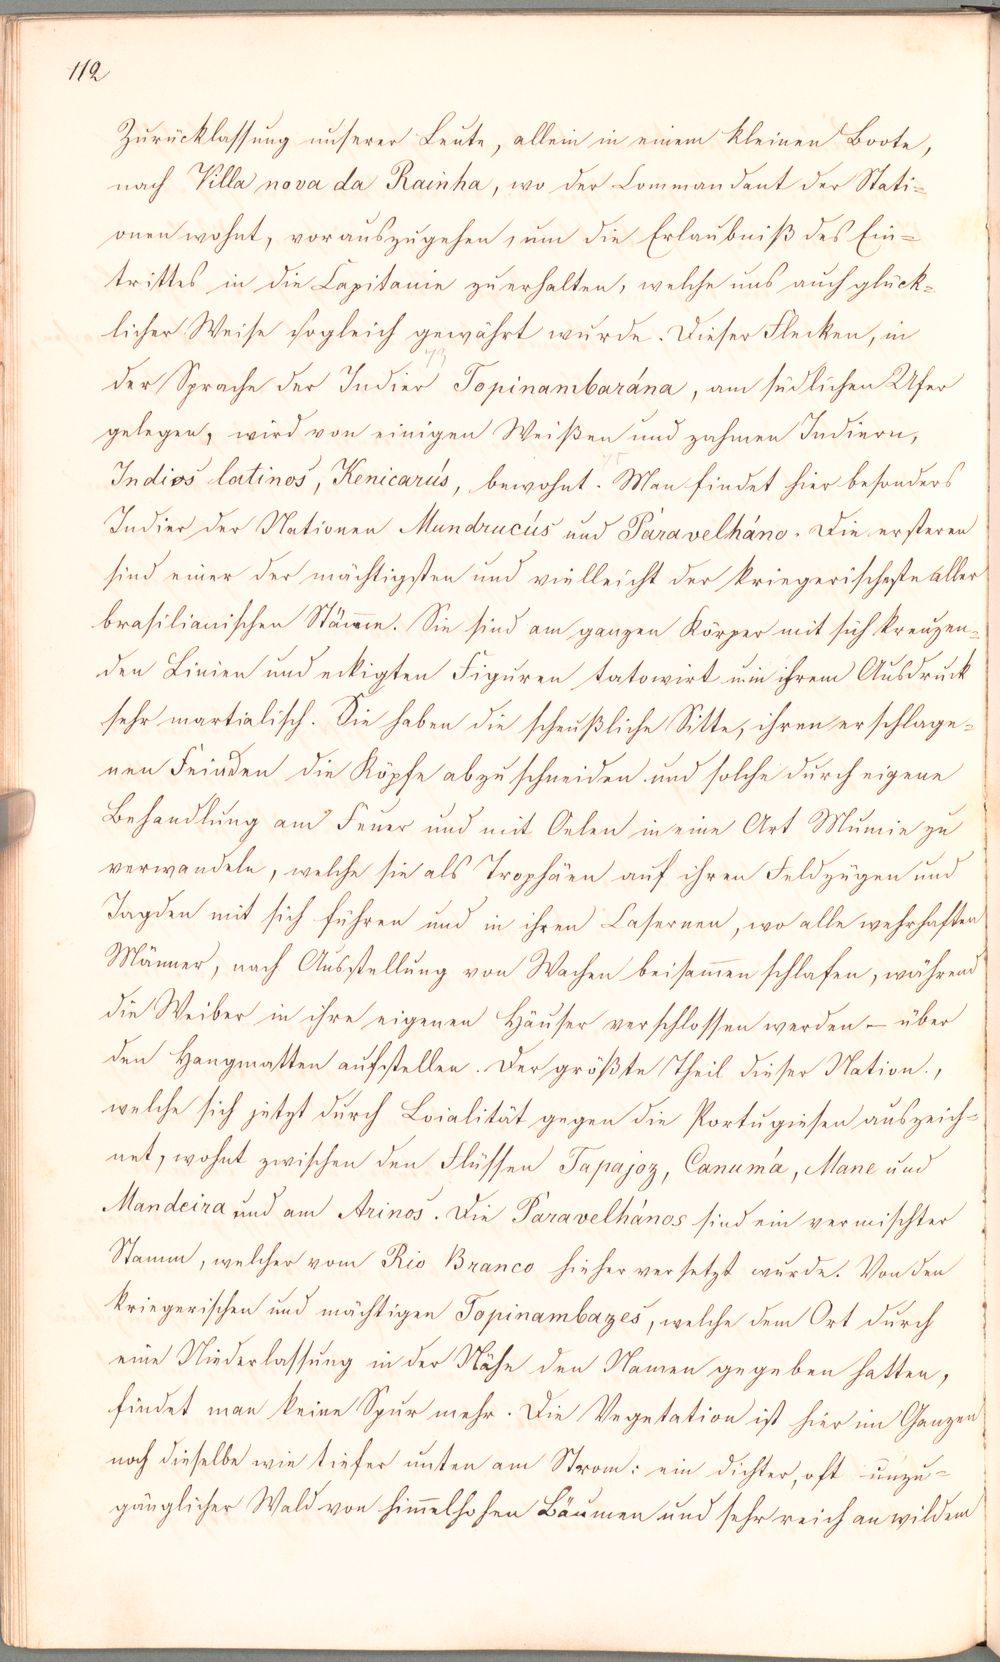 112
Zurücklassung unserer Leute, allein in einem kleinen Boote,
nach Villa nova da Rainha, wo der Commandant der Stati=
onen wohnt, vorauszugehen, um die Erlaubniß des Ein=
trittes in die Capitanie zu erhalten, welche uns auch glück=
licher Weise sogleich gewährt wurde. Dieser Flecken, in
der Sprache der Indier Topinambarána, am südlichen Ufer
gelegen, wird von einigen Weißen und zahmen Indiern,
Indios latinos, Kenicarús, bewohnt. Man findet hier besonders
Indier der Nationen Mundrucús und Páravelháno. Die ersteren
sind einer der mächtigsten und vielleicht der kriegerischeste aller
brasilianischen Stämme. Sie sind am ganzen Körper mit sich kreuzen=
den Linien und eckigten Figuren tatowirt u. in ihrem Ausdruck
sehr martialisch. Sie haben die scheußliche Sitte, ihren erschlage=
nen Feinden die Köpfe abzuschneiden und solche durch eigene
Behandlung am Feuer und mit Oelen in eine Art Mumie zu
verwandeln, welche sie als Trophäen auf ihren Feldzügen und
Jagden mit sich führen und in ihren Casernen, wo alle wehrhaften
Männer, nach Ausstellung von Wachen beisam̄en schlafen, während
die Weiber in ihre eigenen Häuser verschlossen werden – über
den Hangmatten aufstellen. Der größte Theil dieser Nation,
welche sich jetzt durch Loialität gegen die Portugiesen auszeich=
net, wohnt zwischen den Flüssen Tapajoz, Canumá, Mane und
Mandeira und am Arinos. Die Páravelhános sind ein vermischter
Stamm, welcher vom Rio Branco hieher versetzt wurde. Von den
kriegerischen und mächtigen Topinambazes, welche dem Ort durch
eine Niederlassung in der Nähe den Namen gegeben hatten,
findet man keine Spur mehr. Die Vegetation ist hier im Ganzen
noch dieselbe wie tiefer unten am Strom: ein dichter, oft unzu=
gänglicher Wald von him̄elhohen Bäumen und sehr reich an wildem